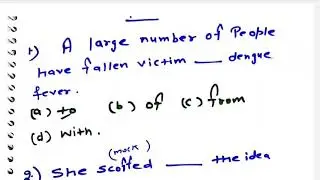 1) A large number of People
have fallen victim ___ dengue
fever.
(a) to (b) of (c) from
(d) with.
(mock)
2) She scoffed ___ the idea